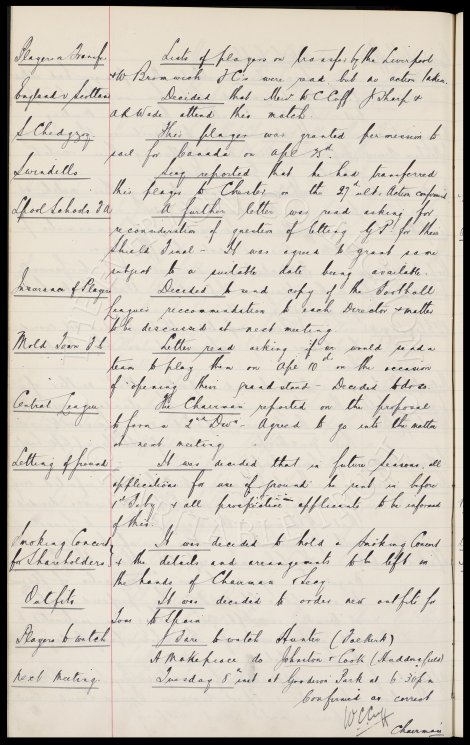 Players on Transfer Lists of players on transfer by the Liverpool
& W. Bromwich F.C's were read but no action taken.
England v Scotland Decided that Messrs W C Cuff J Sharp &
A R Wade attend this match.
S Chedgzoy This player was granted permission to
sail for Canada on Apl 25th.
Swindells Secy reported that he had transferred
this player to Chester on the 27th ult. Action confirmed
Lpool Schools F A A further letter was read asking for
reconsideration of question of letting G.P. for their
Shield Final - It was agreed to grant same
subject to a suitable date being available.
Insurance of Players Decided to send copy of the Football
League's recommendation to each Director & matter
to be discussed at next meeting
Mold Town F C Letter read asking if we would send a
team to play them on Apl 10th on the occasion
of opening their grand stand - Decided to do so.
Central League The Chairman reported on the proposal
to form a 2nd Divn - Agreed to go into the matter
at next meeting
Letting of ground It was decided that in future seasons all
applications for use of ground be sent in before
1st Feby & all prospective applicants to be informed
of this.
Smoking Concert It was decided to hold a Smoking Concert
for Shareholders & the details and arrangements to be left in
the hands of Chairman & Secy.
Outfits It was decided to order new outfits for
Tour to Spain
Players to watch J Fare to watch Hunter (Falkirk)
A Makepeace do Johnston & Cook (Huddersfield)
Next Meeting. Tuesday 8th inst at Goodison Park at 6-30 pm
Confirmed as correct
W C Cuff
Chairman